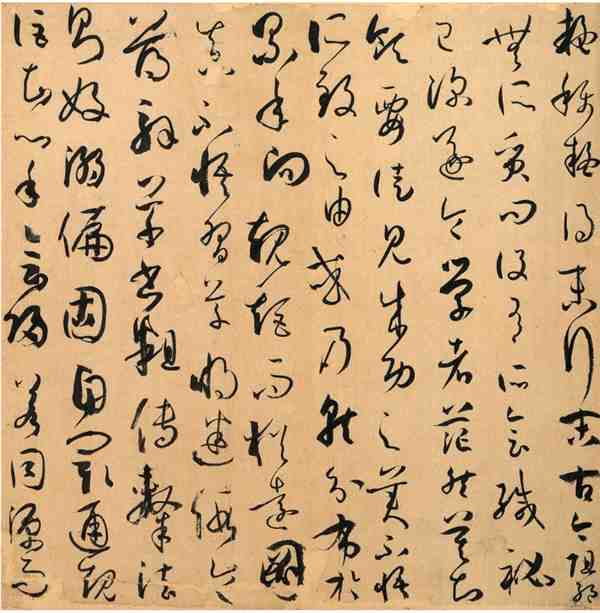 疑稱疑得末行末古今阻絕
無所質問設有所會緘秘
已深遂令學者茫然莫知
領要徒見成功之美不悟
所致之由或乃就分布於
累年向規矩而猶遠圖
真不悟習草將迷假令
薄解草書粗傳隸法
則好溺偏固自閡通規
詎知心手會歸若同源而